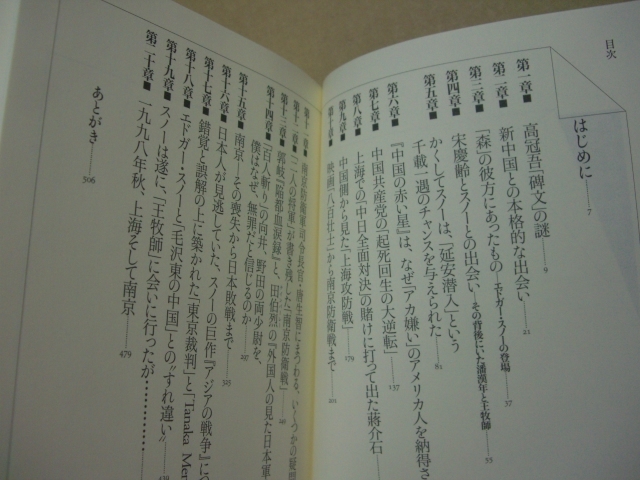 目次
はじめに 7
第一章■ 高冠吾「碑文」の謎 9
第二章■ 新中国との本格的な出会い 21
第三章■ 「森」の彼方にあったもの―エドガー・スノーの登場 37
第四章■ 宋慶齢とスノーとの出会い―その背後にいた潘漢年と王牧師 55
第五章■ かくしてスノーは、「延安潜入」という
千載一遇のチャンスを与えられた 81
第六章■ 『中国の赤い星』は、なぜ「アカ嫌い」のアメリカ人を納得さ
第七章■ 中国共産党の「起死回生の大逆転」 137
第八章■ 上海での「中日全面対決」の賭けに打って出た蔣介石
第九章■ 中国側から見た「上海攻防戦」 179
第十章■ 映画「八百壮士」から南京防衛戦まで 201
南京防衛軍司令長官・唐生智にまつわる、いくつかの疑問
第十二章■ 「二人の将軍」が書き残した「南京防衛戦」
第十三章■ 郭岐「陥都血涙録」と、田伯烈の『外国人の見た日本軍
第十四章■ 「百人斬り」の向井、野田の両少尉を、
僕はなぜ、無罪だと信じるのか 297
第十五章■ 南京―その喪失から日本敗戦まで 325
第十六章■ 日本人が見逃していた、スノーの巨作『アジアの戦争』につ
第十七章■ 錯覚と誤解の上に築かれた「東京裁判」と「Tanaka Mem
第十八章■ エドガー・スノーと「毛沢東の中国」との“すれ違い”
第十九章■ スノーは遂に、「王牧師」に会いに行ったが…………
第二十章■ 一九九八年秋、上海そして南京 479
あとがき 506